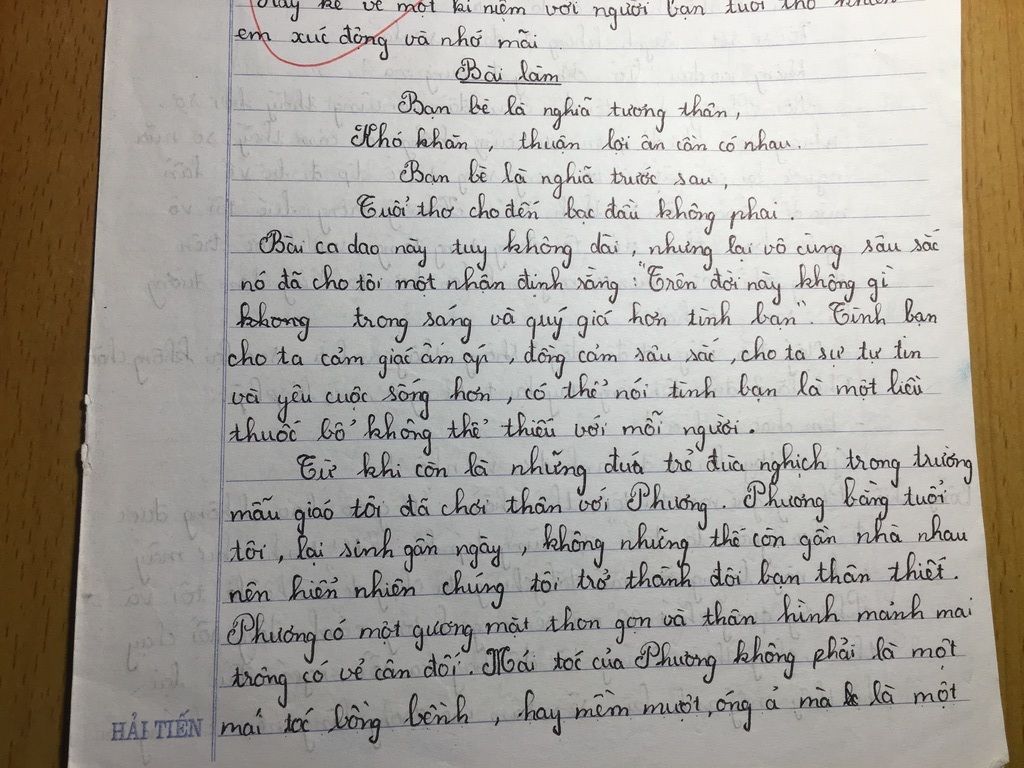 kể về một kỉ niệm với người bạn tuổi thơ khiến
em xúc động và nhớ mãi.
Bài làm
Bạn bè là nghĩa tương thân,
Khó khăn, thuận lợi ân cần có nhau.
Bạn bè là nghĩa trước sau,
Tuổi thơ cho đến bạc đầu không phai.
Bài ca dao này tuy không dài, nhưng lại vô cùng sâu sắc
nó đã cho tôi một nhận định rằng: "Trên đời này không gì
khong trong sáng và quý giá hơn tình bạn". Tình bạn
cho ta cảm giác ấm áp, đồng cảm sâu sắc, cho ta sự tự tin
và yêu cuộc sống hơn, có thể nói tình bạn là một liều
thuốc bổ không thể thiếu với mỗi người.
Từ khi còn là những đứa trẻ đùa nghịch trong trường
mẫu giáo tôi đã chơi thân với Phương. Phương bằng tuổi
tôi, lại sinh gần ngày, không những thế còn gần nhà nhau
nên hiển nhiên chúng tôi trở thành đôi bạn thân thiết.
Phương có một gương mặt thon gọn và thân hình mảnh mai
trông có vẻ cân đối. Mái tóc của Phương không phải là một
mái tóc bồng bềnh, hay mềm mượt, óng ả mà là một
HẢI TIẾN